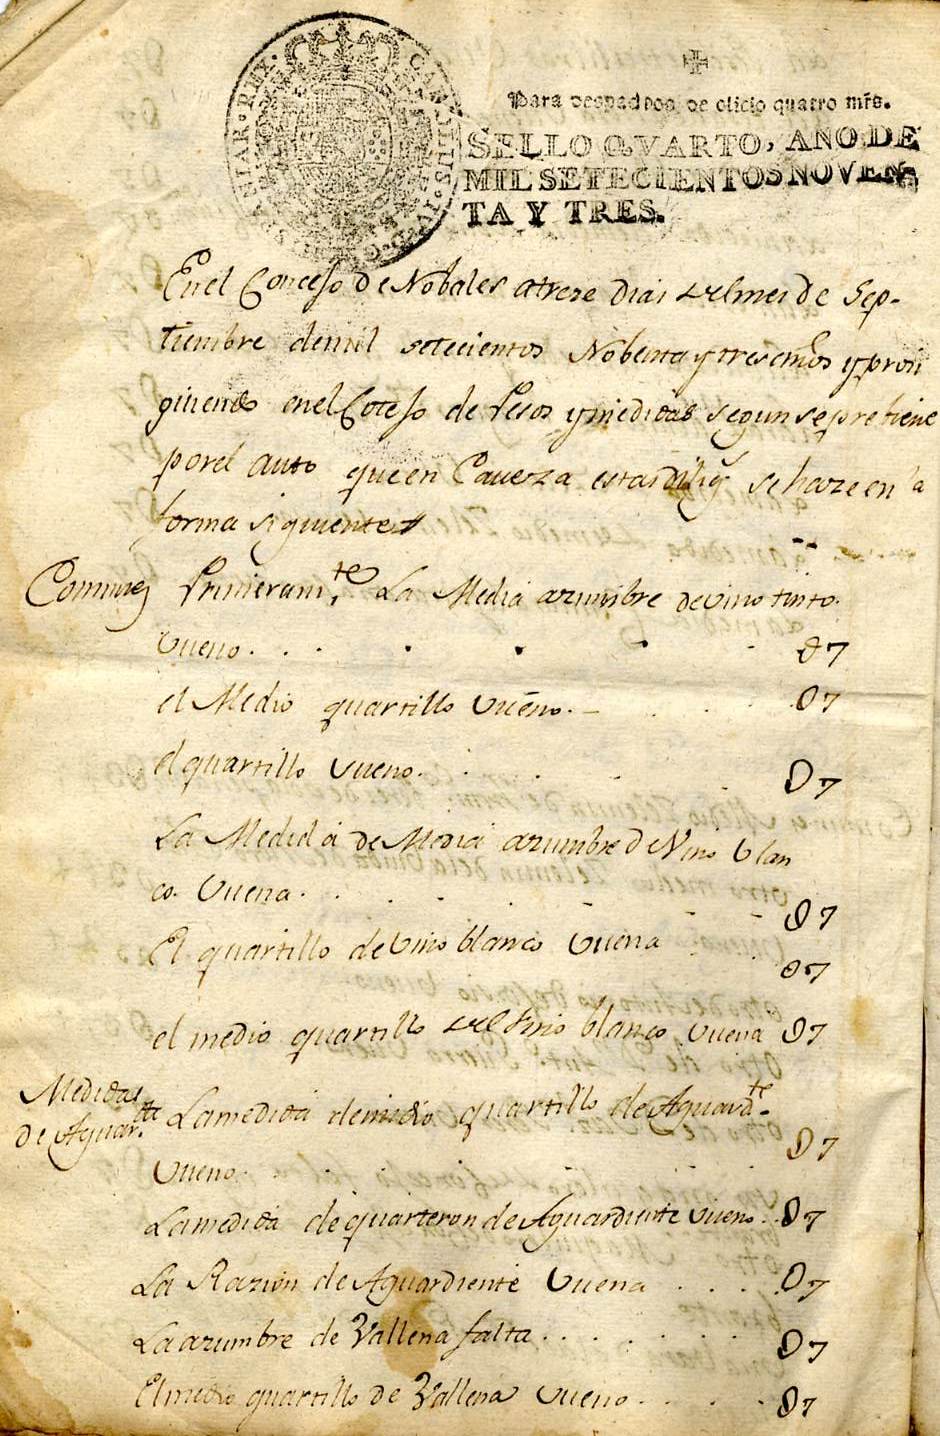 CAROLUS IV D G HISPANIAR REX
Para despachos de oficio quatro mrs.
SELLO QVARTO, AÑO DE
MIL SETECIENTOS NOVEN-
TA Y TRES.
En el Concejo de Nobales a treze dias del mes de Sep-
tiembre de mil setecientos Nobenta y tres años y prosi
guiendo en el Cotejo de Pesos y medidas segun se pretiene
por el auto que en Caveza esta se haze en la
forma siguiente
Comunes Primeram.te La Media azumbre de vino tinto
Vueno . . . . . . 07
el Medio quartillo Vueno. - . . . 07
el quartillo Vueno. . . . . 07
La Medida de Media azumbre de Vino blan
co. Vuena. . . . - - - 07
El quartillo de Vino blanco Vuena . . 07
el medio quartillo del Vino blanco Vuena 07
Medidas
de Aguar.te La medida de medio quartillo de Aguard.te
Vueno. . . . . . 07
La medida de quarteron de Aguardiente Vueno. . 07
La Razion de Aguardiente Vuena . . . . 07
La azumbre de Vallena falta . . . . . . 07
El medio quartillo de Vallena Vueno . . . . 07